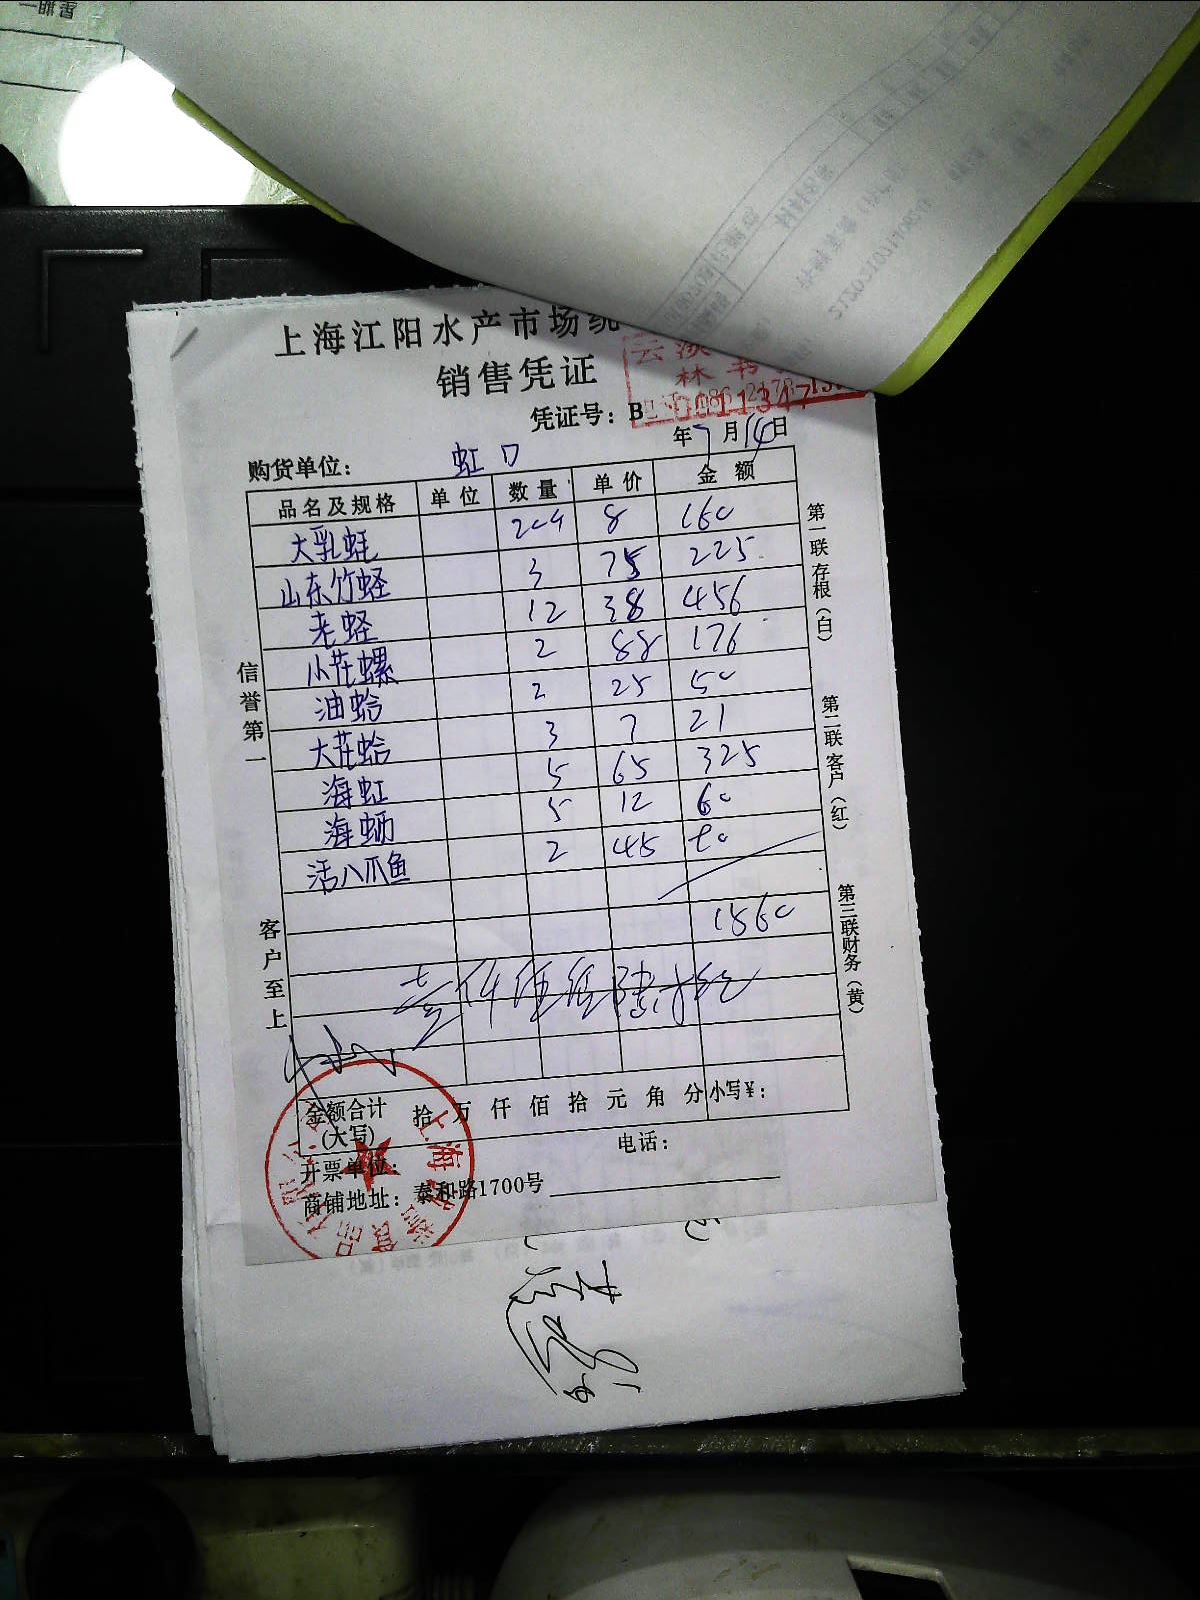 上海江阳水产市场统
销售凭证
凭证号：B
年7月14日
购货单位： 虹口
品名及规格 单位 数量 单价 金额
大乳蚌 20个 8 160
山东竹蛏 3 75 225
老蛏 12 38 456
小花螺 2 88 176
油蛤 2 25 50
大花蛤 3 7 21
海虹 5 65 325
海蛎 5 12 60
活八爪鱼 2 45 90
1560
壹仟伍佰陆拾
信誉第一
客户至上
第一联存根（白）
第二联客户（红）
第三联财务（黄）
金额合计
(大写) 拾 万 仟 佰 拾 元 角 分 小写¥：
开票单位： 电话：
商铺地址：泰和路1700号